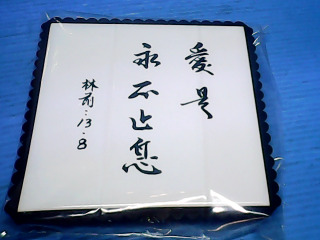 愛是
永不止息
林前:13.8